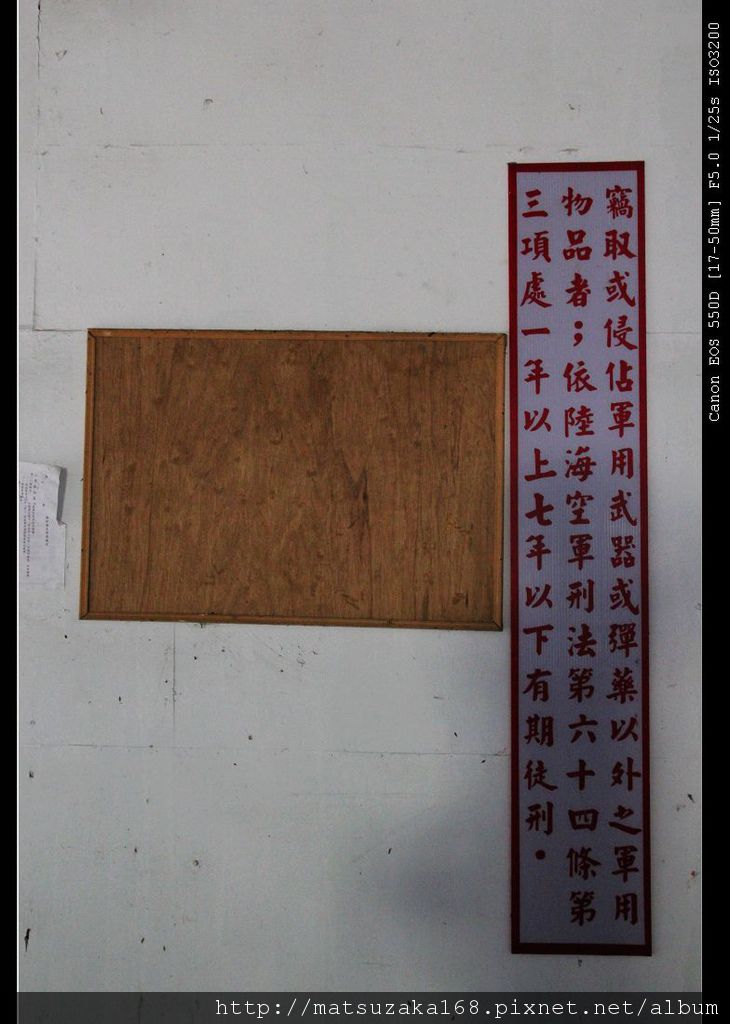 竊取或侵佔軍用武器或彈藥以外之軍用
物品者；依陸海空軍刑法第六十四條第
三項處一年以上七年以下有期徒刑。
Canon EOS 550D [17-50mm] F5.0 1/25s ISO3200
http://matsuzaka168.pixnet.net/album